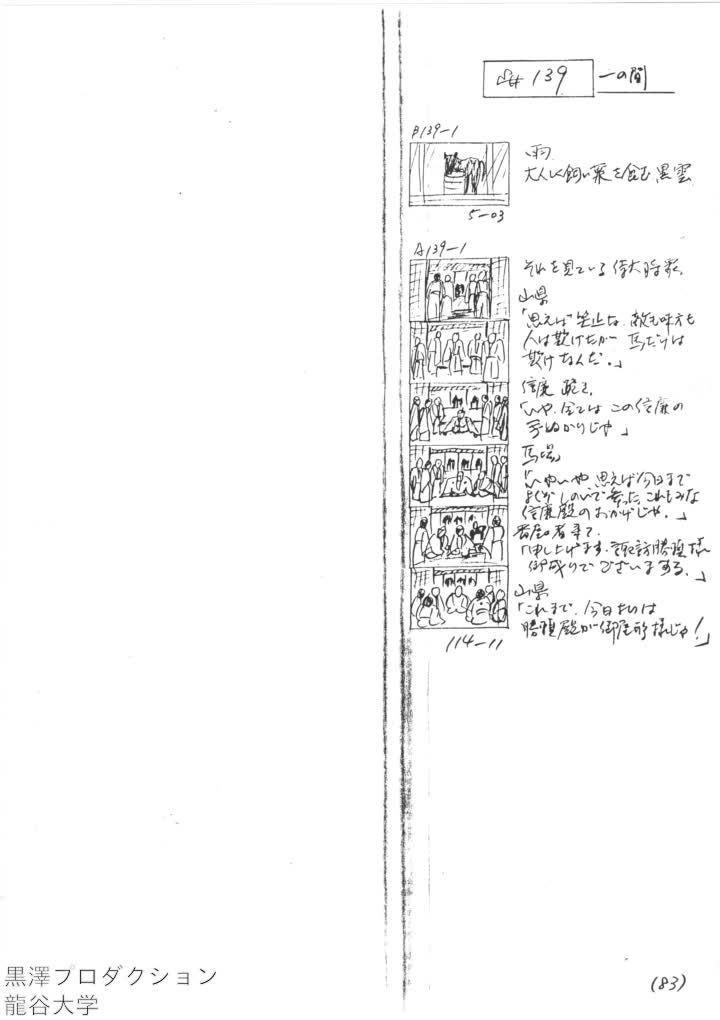 #139 一の間
B139-1
雨
大人しく飼い葉を食む黒雲
5-03
A139-1
それを見ている侍大将
山県
「思えば笑止な、敵も味方も
人は欺けたが 馬だけは
欺けなんだ。」
信廉
「いや、全ては この信廉の
手ぬかりじゃ」
馬場
「いやいや、思えば今日まで
よくぞしのいで 、これもみな
信廉殿のおかげじゃ。」
「申し上げます、諏訪勝頼様
御成りでございまする。」
山県
「これまで、今日よりは
勝頼殿が御屋形様じゃ!」
114-11
(83)
黒澤プロダクション
龍谷大学